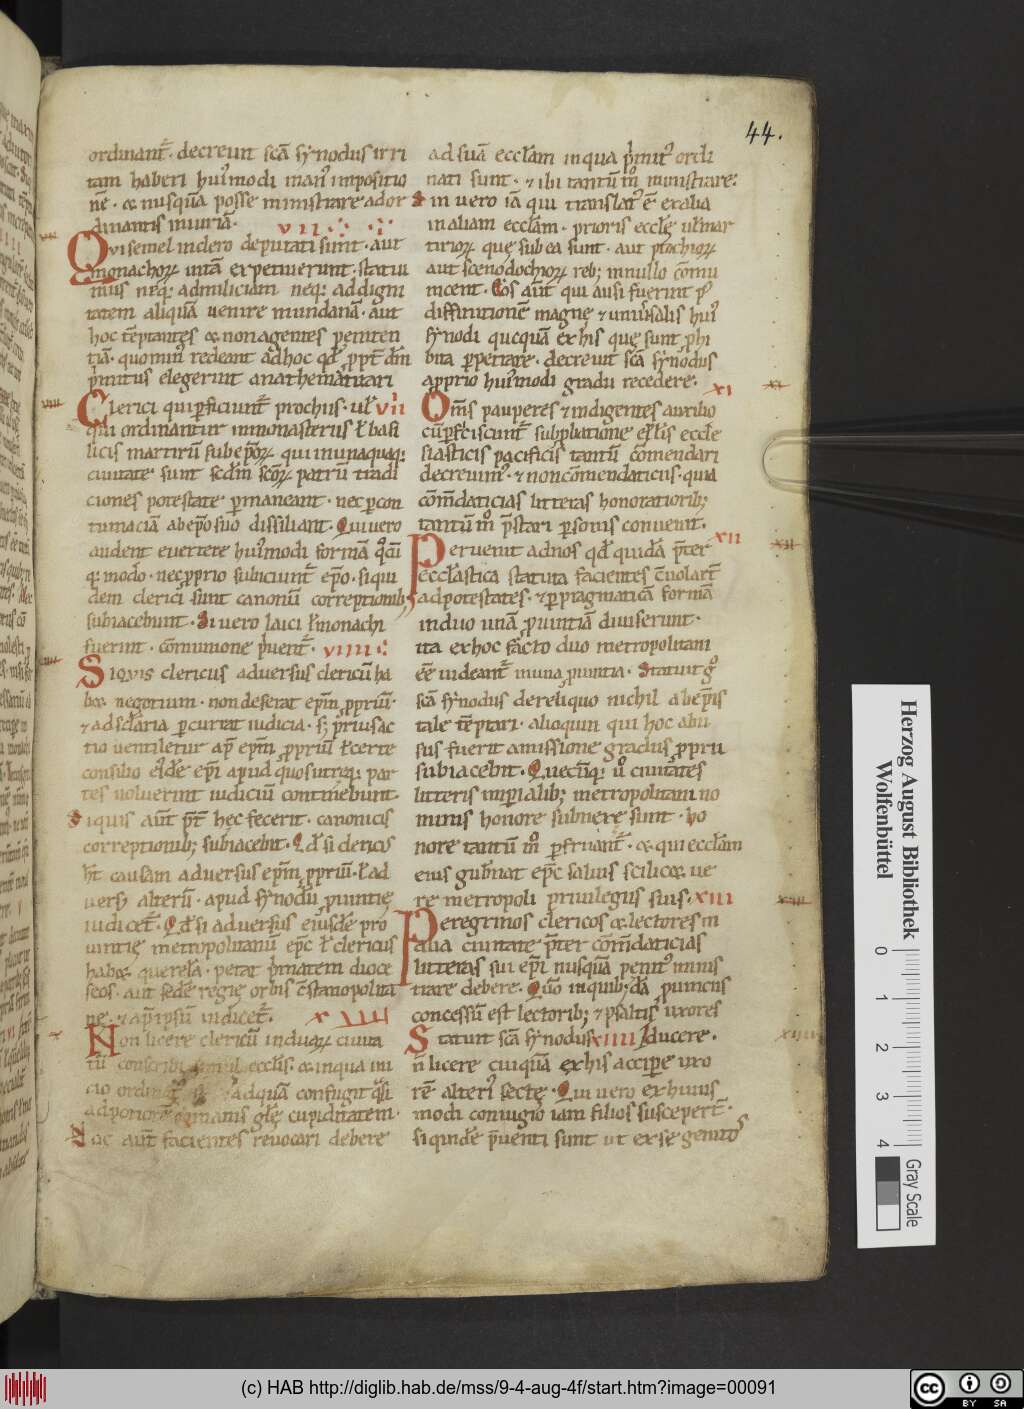 44.
ordinant᷑. decreuit scā synodus irri
tam haberi hui᷒modi man᷒ impositio
nē. & nusquā posse ministrare ad or
dinantis iniuriā. VII
Qui semel in clero deputati sunt. aut
monachoꝝ uitā expetiuerunt. statui
mus neq; ad miliciam neq; ad digni
tatem aliquā uenire mundanā. aut
hoc tēptantes & non agentes peniten
tiā. quo min᷒ redeant ad hoc qđ ꝓpt̄ dm̄
p̄mitus elegerint anathematizari
Clerici qui ꝑficiunt᷑ ptochiis. ul̄ VII
qui ordinantur in monasteriis ł basi
licis martirū sub epōꝝ. qui in unaquaq;
ciuitate sunt scd̄m scōꝝ patrū tradi
ciones potestate ꝑmaneant. nec ꝑ con
tumaciā ab epō suo dissiliant. Qui uero
audent euertere hui᷒modi formā qͦcū
q; modo. nec ꝓprio subiciunt᷑ epō. siqui
dem clerici sunt canonū correptionib;
subiacebunt. Si uero laici ł monachi
fuerint. cōmunione p̄uent᷑. VIIII
Siquis clericus aduersus clericū ha
b& negotium. non deserat epm̄ ꝓpriū.
⁊ ad sclaria ꝑcurrat iudicia. s; p̄rius ac
tio uentiletur ap̄ epm̄ ꝓpriū ł certe
consilio ei᷒dē epī apud quos utreq; par
tes uoluerint iudiciū continebunt.
Siquis aut̄ p̄t̄ hęc fecerit. canonicis
correptionib; subiacebit. Qd̄ si clericus
ht̄ causam aduersus epm̄ ꝓpriū. ł ad
uers᷒ alterū. apud synodū ꝓuintię
iudicet᷑. Qd̄ si aduersus ei᷒usdē pro
uintię metropolitanū epc̄ ł clericus
hab& querelā. petat p̄matem dioce
seos. aut sedē regię orbis cōstanopolita
nę. ⁊ ap̄ ipsū iudicet᷑.
Non licere clericū in duaꝝ ciuita
tū conscribi simul ecclis. & in qua ini
cio ordinat᷒ ad quā confugit q̄si
ad potiorē inanis glę cupiditatem.
Hoc aut̄ facientes reuocari debere
ad suā eccl̄am in qua p̄mit᷒ ordi
nati sunt. ⁊ ibi tantū m̊ ministrare:
Sin uero iā qui translat᷒ ē ex alia
in aliam eccl̄am. prioris eccl̄ę ul̄ mar
tirioꝝ quę sub ea sunt. aut ptochioꝝ
aut scenodochioꝝ reb; in nullo cōmu
nicent. Eos aut̄ qui ausi fuerint p᷒
diffinitionē magnę ⁊ uniu᷒salis hui᷒
synodi quicquā ex his quę sunt ꝓhi
bita ꝑpetrare. decreuit scā synodus
a ꝓprio hui᷒modi gradu recedere. XI
Om̄s pauperes ⁊ indigentes auxilio
cū ꝓficiscunt᷑ sub ꝓbatione epl̄is eccle
siasticis pacificis tantū cōmendari
decreuim᷒. ⁊ non cōmendaticiis. quia
cōm̄daticias litteras honoratiorib;
tantū m̊ p̄stari ꝑsonis conuenit. XII
Peruenit ad nos qđ quidā p̄ter
eccl̄astica statuta facientes cōuolart̄
ad potestates. ⁊ ꝑ pragmaticā formā
in duo unā ꝓuintiā diuiserunt.
ita ex hoc facto duo metropolitani
ēē uideant᷑ in una ꝓuintia. Statuit gͦ
scā synodus de reliquo nichil ab ep̄is
tale tēptari. alioquin qui hoc abu
sus fuerit amissione gradus ꝓprii
subiacebit. Quecūq; ů ciuitates
litteris imꝑialib; metropolitani no
minis honore subniexe sunt. ho
nore tantū m̊ ꝑfruant᷑. & qui eccl̄am
eius gub̄nat epc̄ saluis scilic& ue
re metropoli priuilegiis suis. XIII
Peregrinos clericos & lectores in
alia ciuitate p̄ter cōm̄daticias
litteras sui epī nusquā penit᷒ minis
trare debere. Qm̄ in quib;dā ꝓuinciis
concessū est lectorib; ⁊ psaltis uxores
Statuit scā synodus XIIII ducere.
n̄ licere cuiquā ex his accipe uxo
rē alteri᷒ sectę. Qui uero ex huius
modi coniugio iam filios suscepert̄.
siquidē p̄uenti sunt ut ex se genitos
Herzog August Bibliothek
Wolfenbüttel
0 1 2 3 4
Gray Scale
(c) HAB http://diglib.hab.de/mss/9-4-aug-4f/start.htm?image=00091
cc BY SA